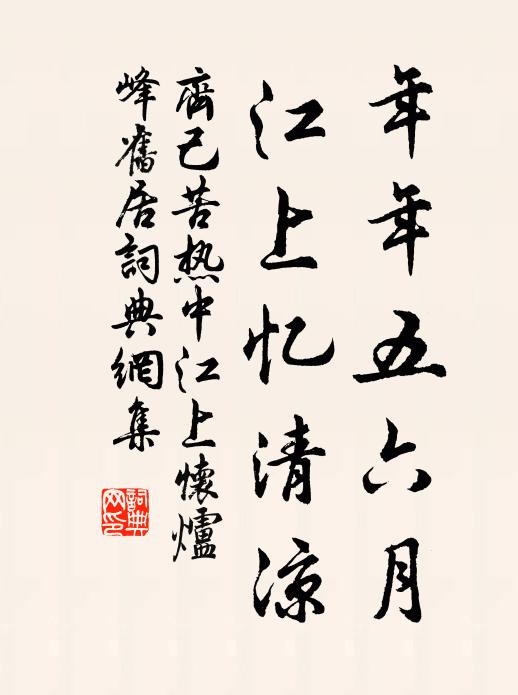 年年五六月
江上忆清凉
齊己苦热中江上懷爐
峰舊居詞典網集
詞典网印